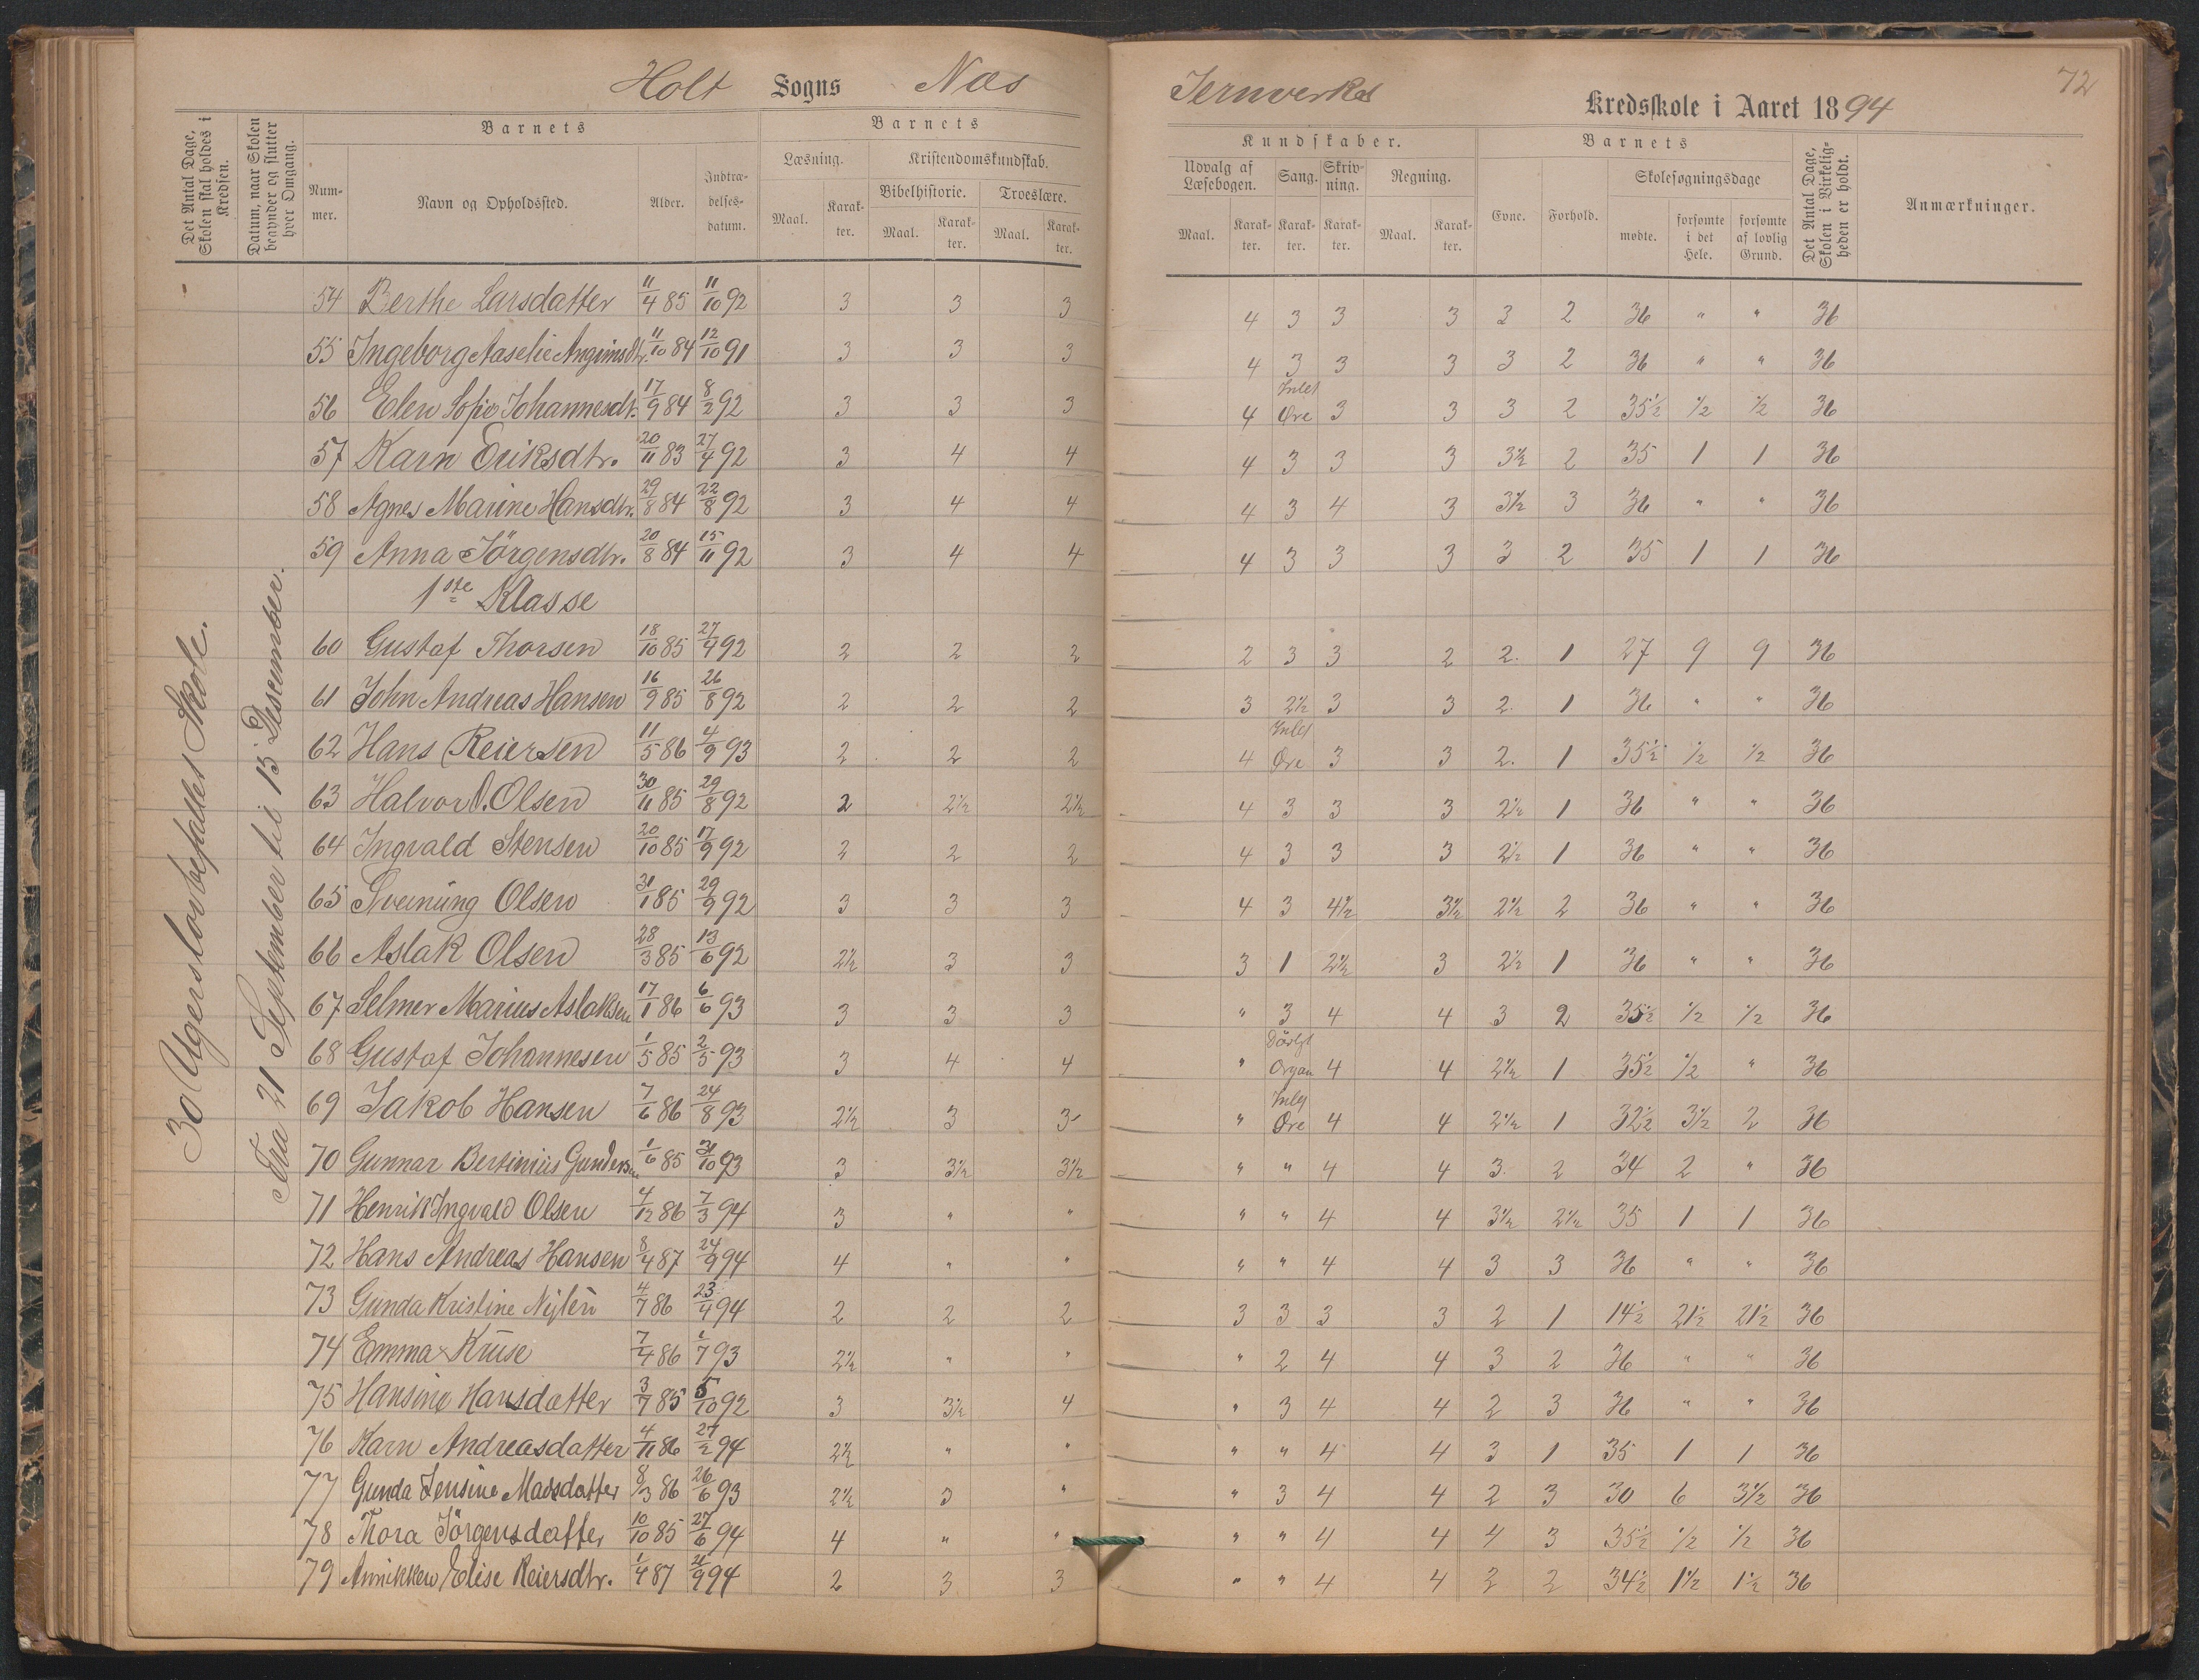 Holt Sogns Næs Jernverks Kredsskole i Aaret 1894
72
Det Antal Dage, Skolen skal holdes i Kredsen.
Datum, naar Skolen begynder og slutter hver Omgang.
Barnets
Barnets
Kundskaber.
Barnets
Nummer.
Navn og Opholdssted.
Alder.
Indtrædelsesdatum.
Læsning.
Maal. Karakter.
Kristendomskundskab.
Bibelhistorie.
Maal. Karakter.
Troeslære.
Maal. Karakter.
Udvalg af Læsebogen.
Maal. Karakter.
Sang. Karakter.
Skrivning. Karakter.
Regning.
Maal. Karakter.
Evne.
Forhold.
Skolesøgningsdage
mødte.
forsømte i det Hele.
forsømte af lovlig Grund.
Det Antal Dage, Skolen i Virkeligheden er holdt.
Anmærkninger.
30 Ugers lovbefalet Skole.
Fra 21 September til 15 Desember.
54 Berthe Larsdatter 11/4 85 11/10 92 3 3 3 4 3 3 3 3 2 36 " " 36
55 Ingeborg Aaselie Angrimsdtr. 11/10 84 12/10 91 3 3 3 4 3 3 3 3 2 36 " " 36
56 Elen Sofie Johannesdtr. 17/9 84 8/2 92 3 3 3 4 Intet Øre 3 3 3 2 35½ ½ ½ 36
57 Karn Eriksdtr. 20/11 83 27/4 92 3 4 4 4 3 3 3 3½ 2 35 1 1 36
58 Agnes Marine Hansdtr. 29/8 84 22/8 92 3 4 4 4 3 4 3 3½ 3 36 " " 36
59 Anna Jörgensdtr. 20/8 84 15/11 92 3 4 4 4 3 3 3 3 2 35 1 1 36
1ste Klasse
60 Gustaf Thorsen 18/10 85 27/9 92 2 2 2 2 3 3 2 2. 1 27 9 9 36
61 John Andreas Hansen 16/9 85 26/8 92 2 2 2 3 2½ 3 3 2. 1 36 " " 36
62 Hans Reiersen 11/5 86 4/9 93 2 2 2 4 Intet Øre 3 3 2. 1 35½ ½ ½ 36
63 Halvor A. Olsen 30/11 85 29/8 92 2 2½ 2½ 4 3 3 3 2½ 1 36 " " 36
64 Ingvald Stensen 20/10 85 17/9 92 2 2 2 4 3 3 3 2½ 1 36 " " 36
65 Sveinung Olsen 31/1 85 29/9 92 3 3 3 4 3 4½ 3½ 2½ 2 36 " " 36
66 Aslak Olsen 28/3 85 13/6 92 2½ 3 3 3 1 2½ 3 2½ 1 36 " " 36
67 Selmer Marius Aslaksen 17/1 86 6/6 93 3 3 3 " 3 4 4 3 2 35½ ½ ½ 36
68 Gustaf Johannesen 1/5 85 2/5 93 3 4 4 " Dårlgt Organ 4 4 2½ 1 35½ ½ " 36
69 Jakob Hansen 7/6 86 24/8 93 2½ 3 3 " Intet Øre 4 4 2½ 1 32½ 3½ 2 36
70 Gunnar Bertinius Gundersen 1/6 85 31/10 93 3 3½ 3½ " " 4 4 3. 2 34 2 " 36
71 Henrik Ingvald Olsen 4/12 86 7/3 94 3 " " " " 4 4 3½ 2½ 35 1 1 36
72 Hans Andreas Hansen 8/4 87 24/9 94 4 " " " " 4 4 3 3 36 " " 36
73 Gunda Kristine Nylén 4/7 86 23/4 94 2 2 2 3 3 3 3 2 1 14½ 21½ 21½ 36
74 Emma Kruse 7/4 86 1/7 93 2½ " " " 2 4 4 3 2 36 " " 36
75 Hansine Hansdatter 3/7 85 5/10 92 3 3½ 4 " 3 4 4 2 3 36 " " 36
76 Karn Andreasdatter 4/11 86 27/2 94 2½ " " " " 4 4 3 1 35 1 1 36
77 Gunda Jensine Madsdatter 8/3 86 26/6 93 2½ 3 " " 3 4 4 2 3 30 6 3½ 36
78 Thora Jörgensdatter 10/10 85 27/6 94 4 " " " " 4 4 4 3 35½ ½ ½ 36
79 Annikken Elise Reiersdtr. 1/4 87 21/9 94 2 3 3 " " 4 4 2 2 34½ 1½ 1½ 36